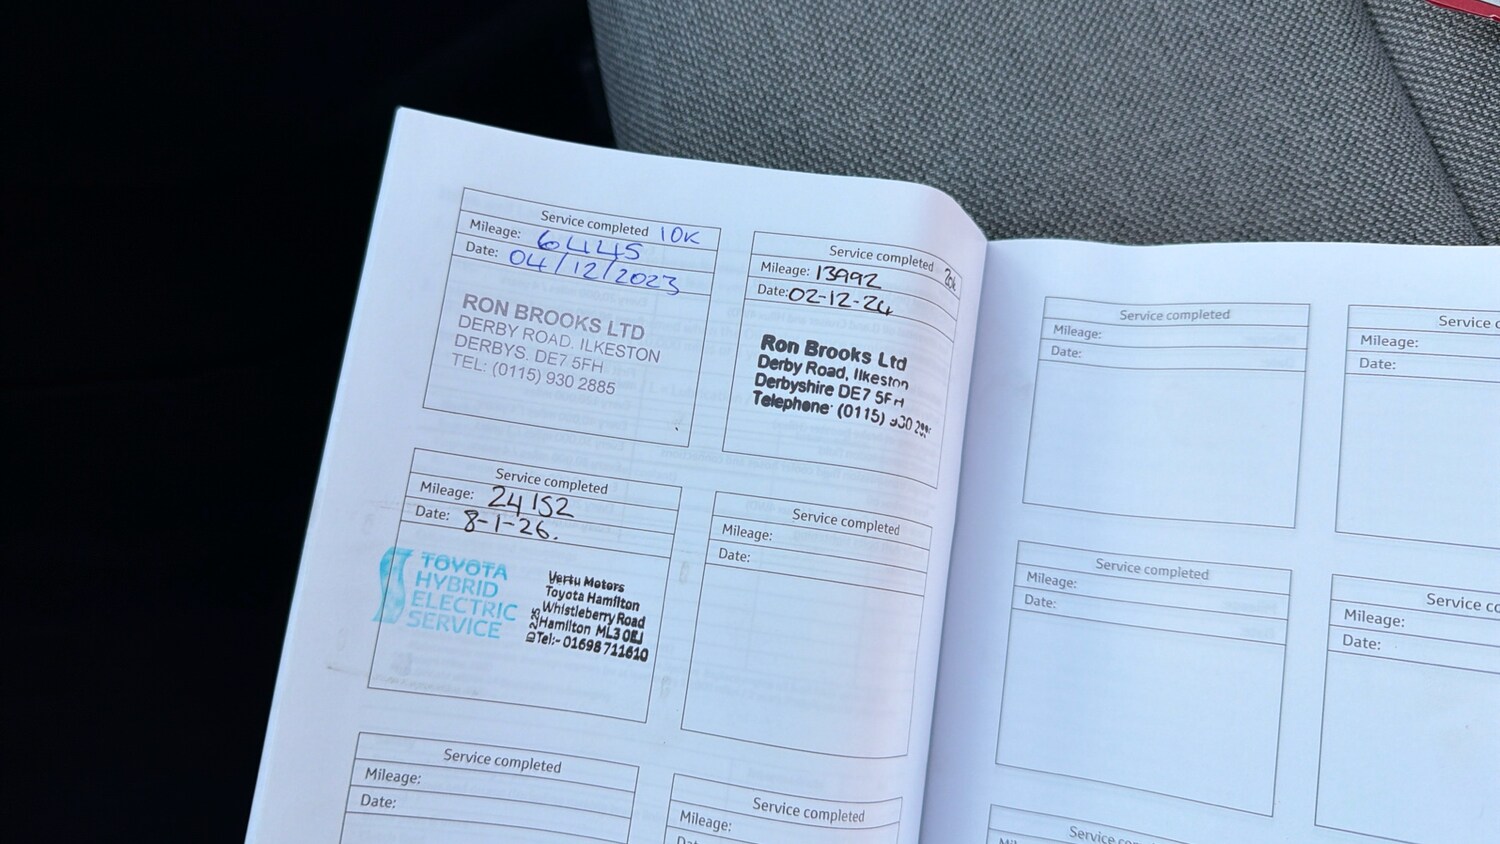 Service completed 10K
Mileage: 6445
Date: 04/12/2023
RON BROOKS LTD
DERBY ROAD, ILKESTON
DERBYS. DE7 5FH
TEL: (0115) 930 2885
Service completed 20k
Mileage: 13992
Date: 02-12-24
Ron Brooks Ltd
Derby Road, Ilkeston
Derbyshire DE7 5FH
Telephone: (0115)
Service completed
Mileage: 24152
Date: 8-1-26.
TOYOTA
HYBRID
ELECTRIC
SERVICE
Vertu Motors
Toyota Hamilton
Whistleberry Road
Hamilton ML3 0EJ
Tel:- 01698 711610
Service completed
Mileage:
Date:
Service completed
Mileage:
Date:
Service completed
Mileage:
Service completed
Mileage:
Date:
Service
Mileage:
Date:
Service completed
Mileage:
Date:
Service
Mileage:
Date:
Service